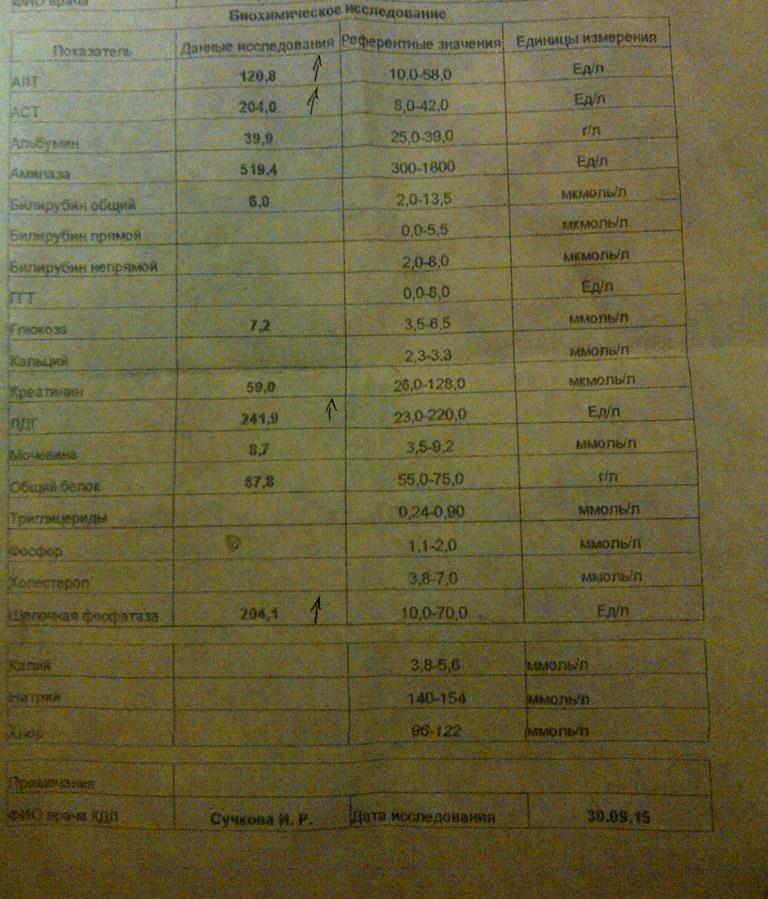 ФИО врача
Биохимическое исследование
Показатель Данные исследования Референтные значения Единицы измерения
АЛТ 120,8 10,0-58,0 Ед/л
АСТ 204,0 8,0-42,0 Ед/л
Альбумин 39,9 25,0-39,0 г/л
Амилаза 519,4 300-1800 Ед/л
Билирубин общий 6,0 2,0-13,5 мкмоль/л
Билирубин прямой 0,0-5,5 мкмоль/л
Билирубин непрямой 2,0-8,0 мкмоль/л
ГГТ 0,0-8,0 Ед/л
Глюкоза 7,2 3,5-6,5 ммоль/л
Кальций 2,3-3,3 ммоль/л
Креатинин 59,0 26,0-128,0 мкмоль/л
ЛДГ 241,9 23,0-220,0 Ед/л
Мочевина 8,7 3,5-9,2 ммоль/л
Общий белок 67,8 55,0-75,0 г/л
Триглицериды 0,24-0,90 ммоль/л
Фосфор 1,1-2,0 ммоль/л
Холестерол 3,8-7,0 ммоль/л
Щелочная фосфатаза 204,1 10,0-70,0 Ед/л
Калий 3,8-5,6 ммоль/л
Натрий 140-154 ммоль/л
Хлор 96-122 ммоль/л
Примечания
ФИО врача КДЛ Сучкова И. Р. Дата исследования 30.09.15